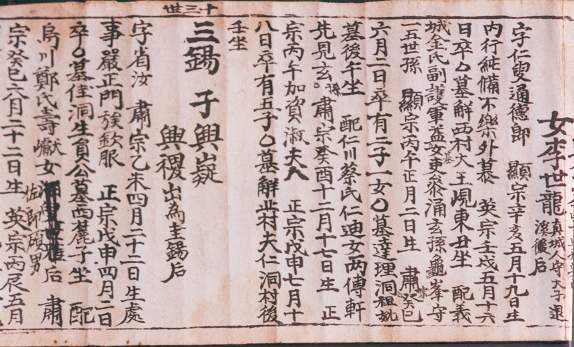 十三世
女李世龍 真城人守大子退
溪徽后
字仁叟通德郎 顯宗辛亥五月十九日生
內行純備不樂外慕 英宗壬戌五月十六
日卒〇墓解西村大王峴東丑坐 配義
城金氏副護軍益女泰涌玄孫龜峯守
一五世孫 顯宗丙午正月二日生 肅宗癸巳
六月二日卒有二子一女〇墓達理洞祖妣
墓後午坐 配仁川蔡氏仁迪女兩傅軒
先見玄孫 肅宗癸酉十二月十七日生 正
宗丙午加資淑夫人 正宗戊申七月十
八日卒有五子〇墓解北村大仁洞村後
壬坐
三錫 子興嶷
興稷出為圭錫后
字省汝 肅宗乙未四月二十二日生處
事嚴正門族欽服 正宗戊申四月二日
卒〇墓佳洞生員公墓西麓子坐 配
烏川鄭氏壽巘女佐郎碩男后 肅
宗癸巳六月二十二日生 英宗丙辰五月